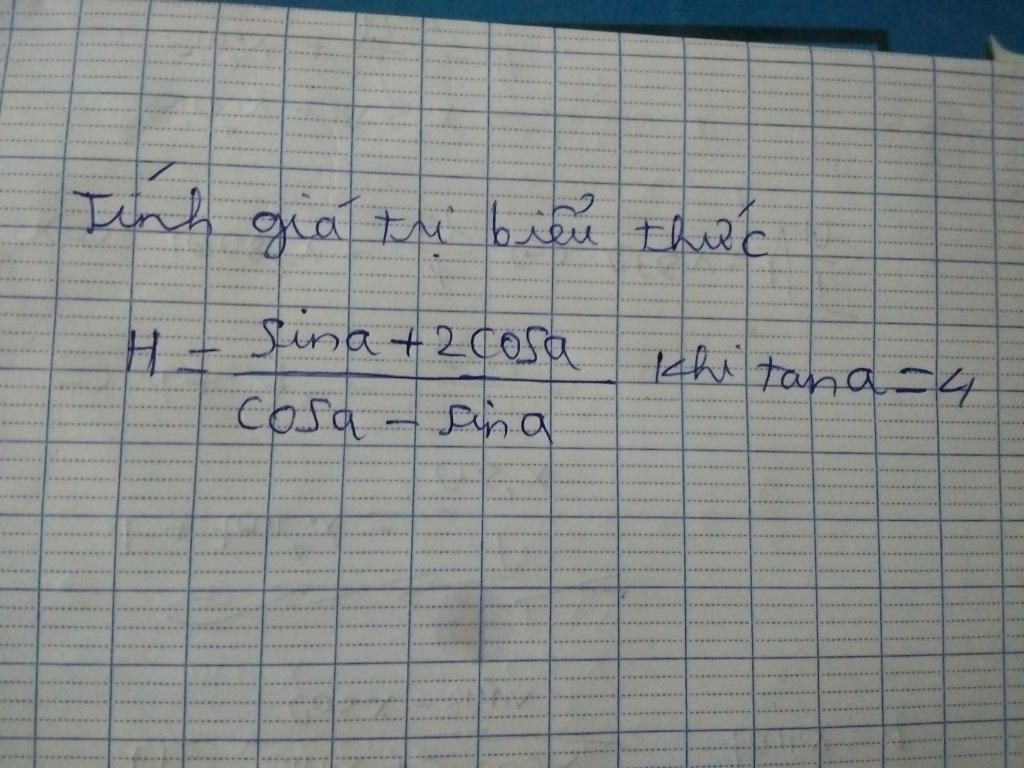 Tính giá trị biểu thức
H = \frac{sina + 2cosa}{cosa - sina} khi tana = 4